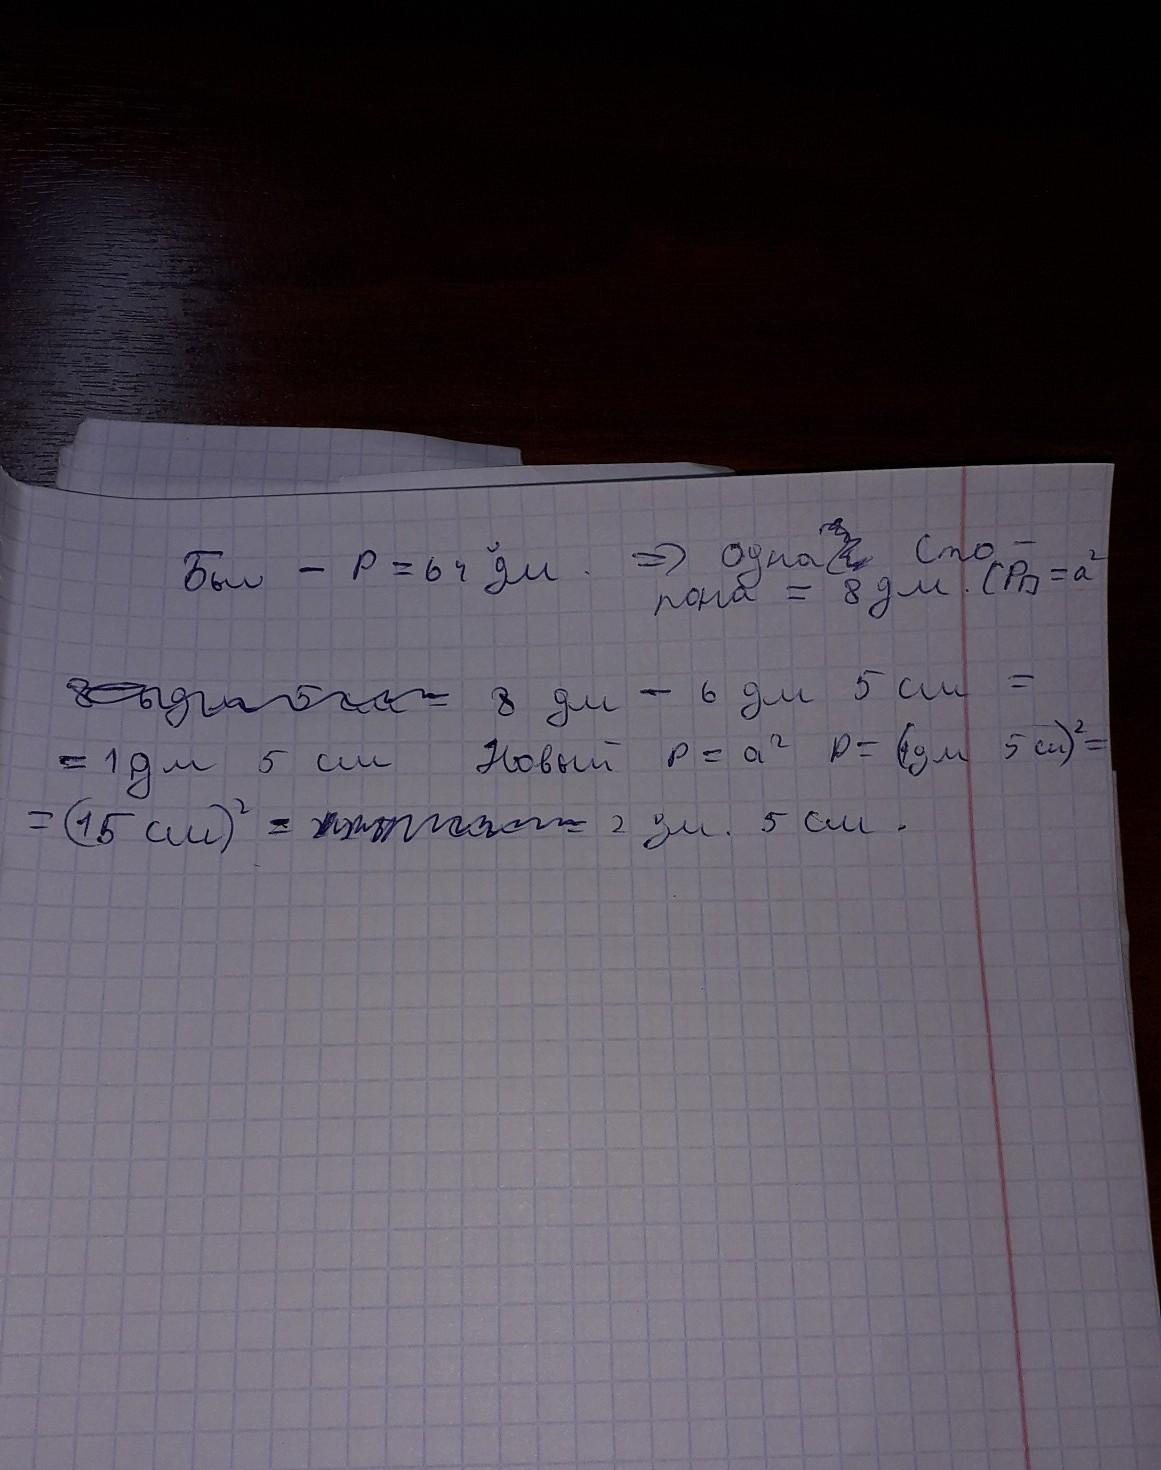 Был - P = 64 дм. => Одна Сто-
рона = 8 дм. (P□ = a²
8 дм - 6 дм 5 см =
= 1 дм 5 см Новый P = a² P = (1дм 5 см)² =
= (15 см)² = 2 дм. 5 см.